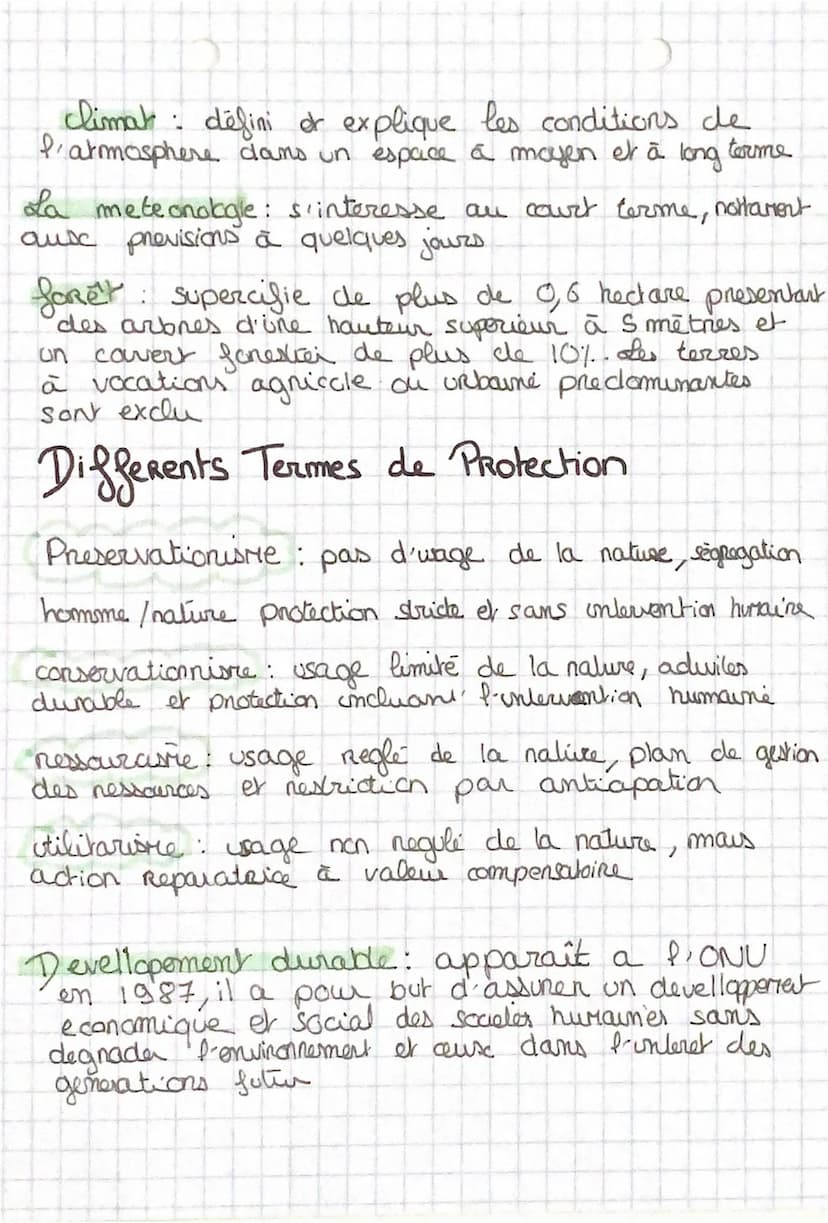 climat : défini et explique les conditions de
l'atmosphere dans un espace à moyen et à long terme
La meteorologie : s'interesse au court terme, nottament
aux previsions à quelques jours
forêt : supercifie de plus de 0,6 hectare presentant
des arbres d'une hauteur superieur à 5 mètres et
un couvert forestrei de plus de 10%. Les terres
à vocations agricole ou urbaine predominantes
sont exclu
Differents Termes de Protection
Preservationisme : pas d'usage de la nature, ségregation
homme / nature protection stricte et sans intervention humaine
conservationnisme : usage limité de la nature, activites
durable et protection incluant l'intervention humaine
ressourcisme : usage reglé de la nature, plan de gestion
des ressources et restriction par anticipation
utilitarisme : usage non regulé de la nature, mais
action reparatrice à valeur compensatoire
Devellopement durable : apparaît a l'ONU
en 1987, il a pour but d'assurer un devellopperent
economique et social des societes humaines sans
degrader l'environnement et ceux dans l'interet des
generations futur